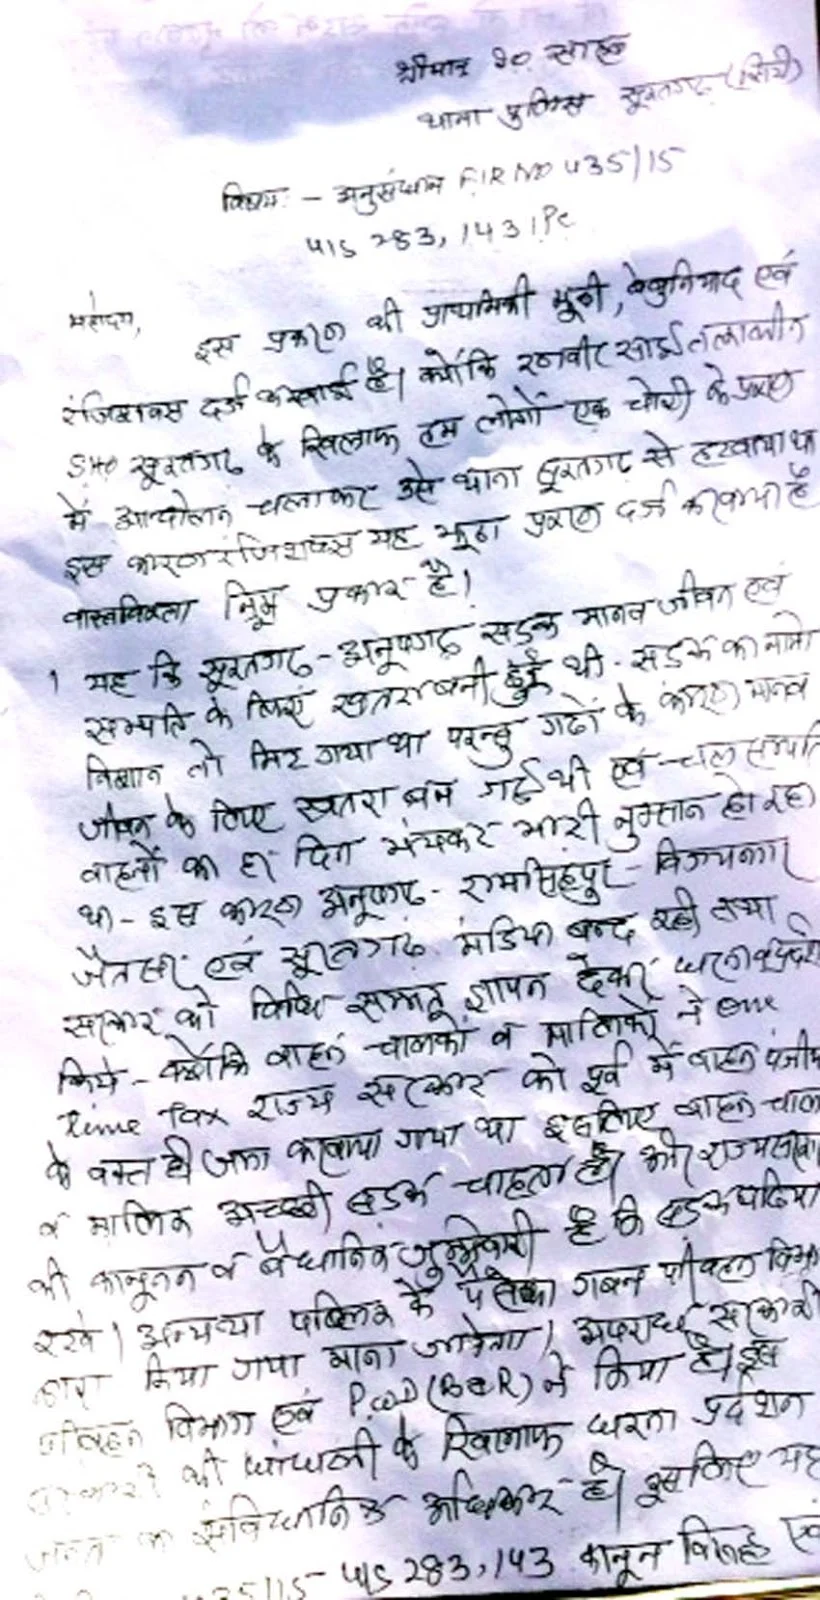 श्रीमान् साहब
थाना पुलिस सूरतगढ़ (सिटी)
विषय :- अनुसंधान FIR NO 435/15
U/S 283, 143 IPC
महोदय,
इस प्रकरण की प्राथमिकी झूठी, बेबुनियाद एवं
रंजिशवस दर्ज करवाई है। क्योंकि रणवीर साईं तत्कालीन
SHO सूरतगढ़ के खिलाफ हम लोगों एक चोरी के प्रकरण
में आन्दोलन चलाकर उसे थाना सूरतगढ़ से हटवाया था
इस कारण रंजिशवस यह झूठा प्रकरण दर्ज करवाया है
वास्तविकता निम्न प्रकार है।
1 यह कि सूरतगढ़ - अनूपगढ़ सड़क मानव जीवन एवं
सम्पति के लिए खतरा बनी हुई थी - सड़क का नामो
निशान तो मिट गया था परन्तु गढों के कारण मानव
जीवन के लिए खतरा बन गई थी एवं चल सम्पति
वाहनों का हर दिन भयंकर भारी नुकसान हो रहा
था - इस कारण अनूपगढ़ - रामसिंहपुर - विजयनगर
जैतसर एवं सूरतगढ़ मंडिया बन्द रही तथा
सरकार को विधि सम्मत ज्ञापन देकर धरना व प्रदर्शन
किये - क्योंकि वाहन चालकों व मालिकों ने One
time tax राज्य सरकार को पूर्व में वाहन पंजीय
के वक्त ही जमा करवाया गया था इसलिए वाहन चाल
व मालिक अच्छी सड़के चाहता है। और राज्य सरका
की कानूनन व वैधानिक जुम्मेवारी है कि सड़क बढिया
रखे। अन्यथा पब्लिक के पैसे का गबन परिवहन विभाग
द्वारा किया गया माना जावेगा। अपराध सरकारी
परिवहन विभाग एवं P.W.D (B&R) ने किया है। इस
सरकारी की धांधली के खिलाफ धरना प्रदर्शन
जनता का संविधानिक अधिकार है। इसलिए यह
435/15 U/S 283, 143 कानून विरूद्ध एवं